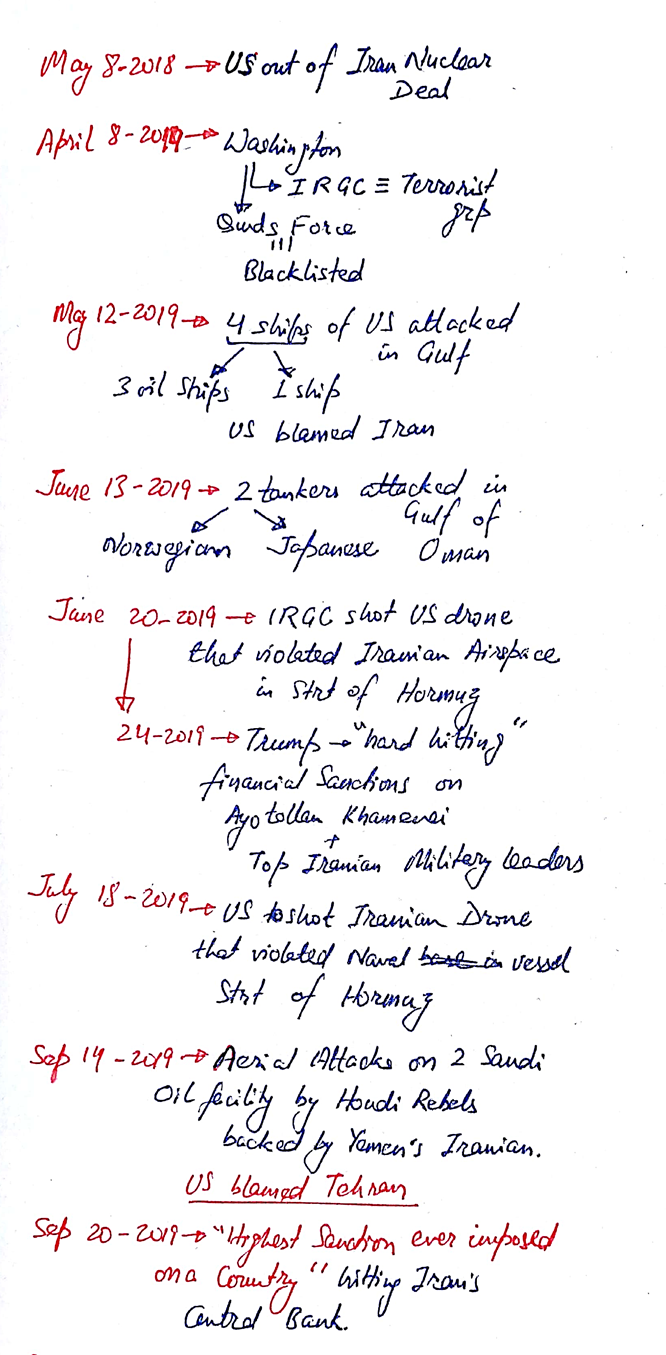 May 8-2018 → US out of Iran Nuclear
Deal
April 8-2019 → Washington
↳ IRGC ≡ Terrorist
grp
Quds Force
Blacklisted
May 12-2019 → 4 ships of US attacked
in Gulf
3 oil Ships 1 ship
US blamed Iran
June 13-2019 → 2 tankers attacked in
Gulf of
Norwegian Japanese Oman
June 20-2019 → IRGC shot US drone
that violated Iranian Airspace
in Strt of Hormuz
24-2019 → Trump → "hard hitting"
financial Sanctions on
Ayotollah Khamenei
+
Top Iranian Military leaders
July 18-2019 → US shot Iranian Drone
that violated Naval vessel
Strt of Hormuz
Sep 14-2019 → Aerial Attacks on 2 Saudi
Oil facility by Houdi Rebels
backed by Yemen's Iranian.
US blamed Tehran
Sep 20-2019 → "Highest Sanction ever imposed
on a Country" hitting Iran's
Central Bank.